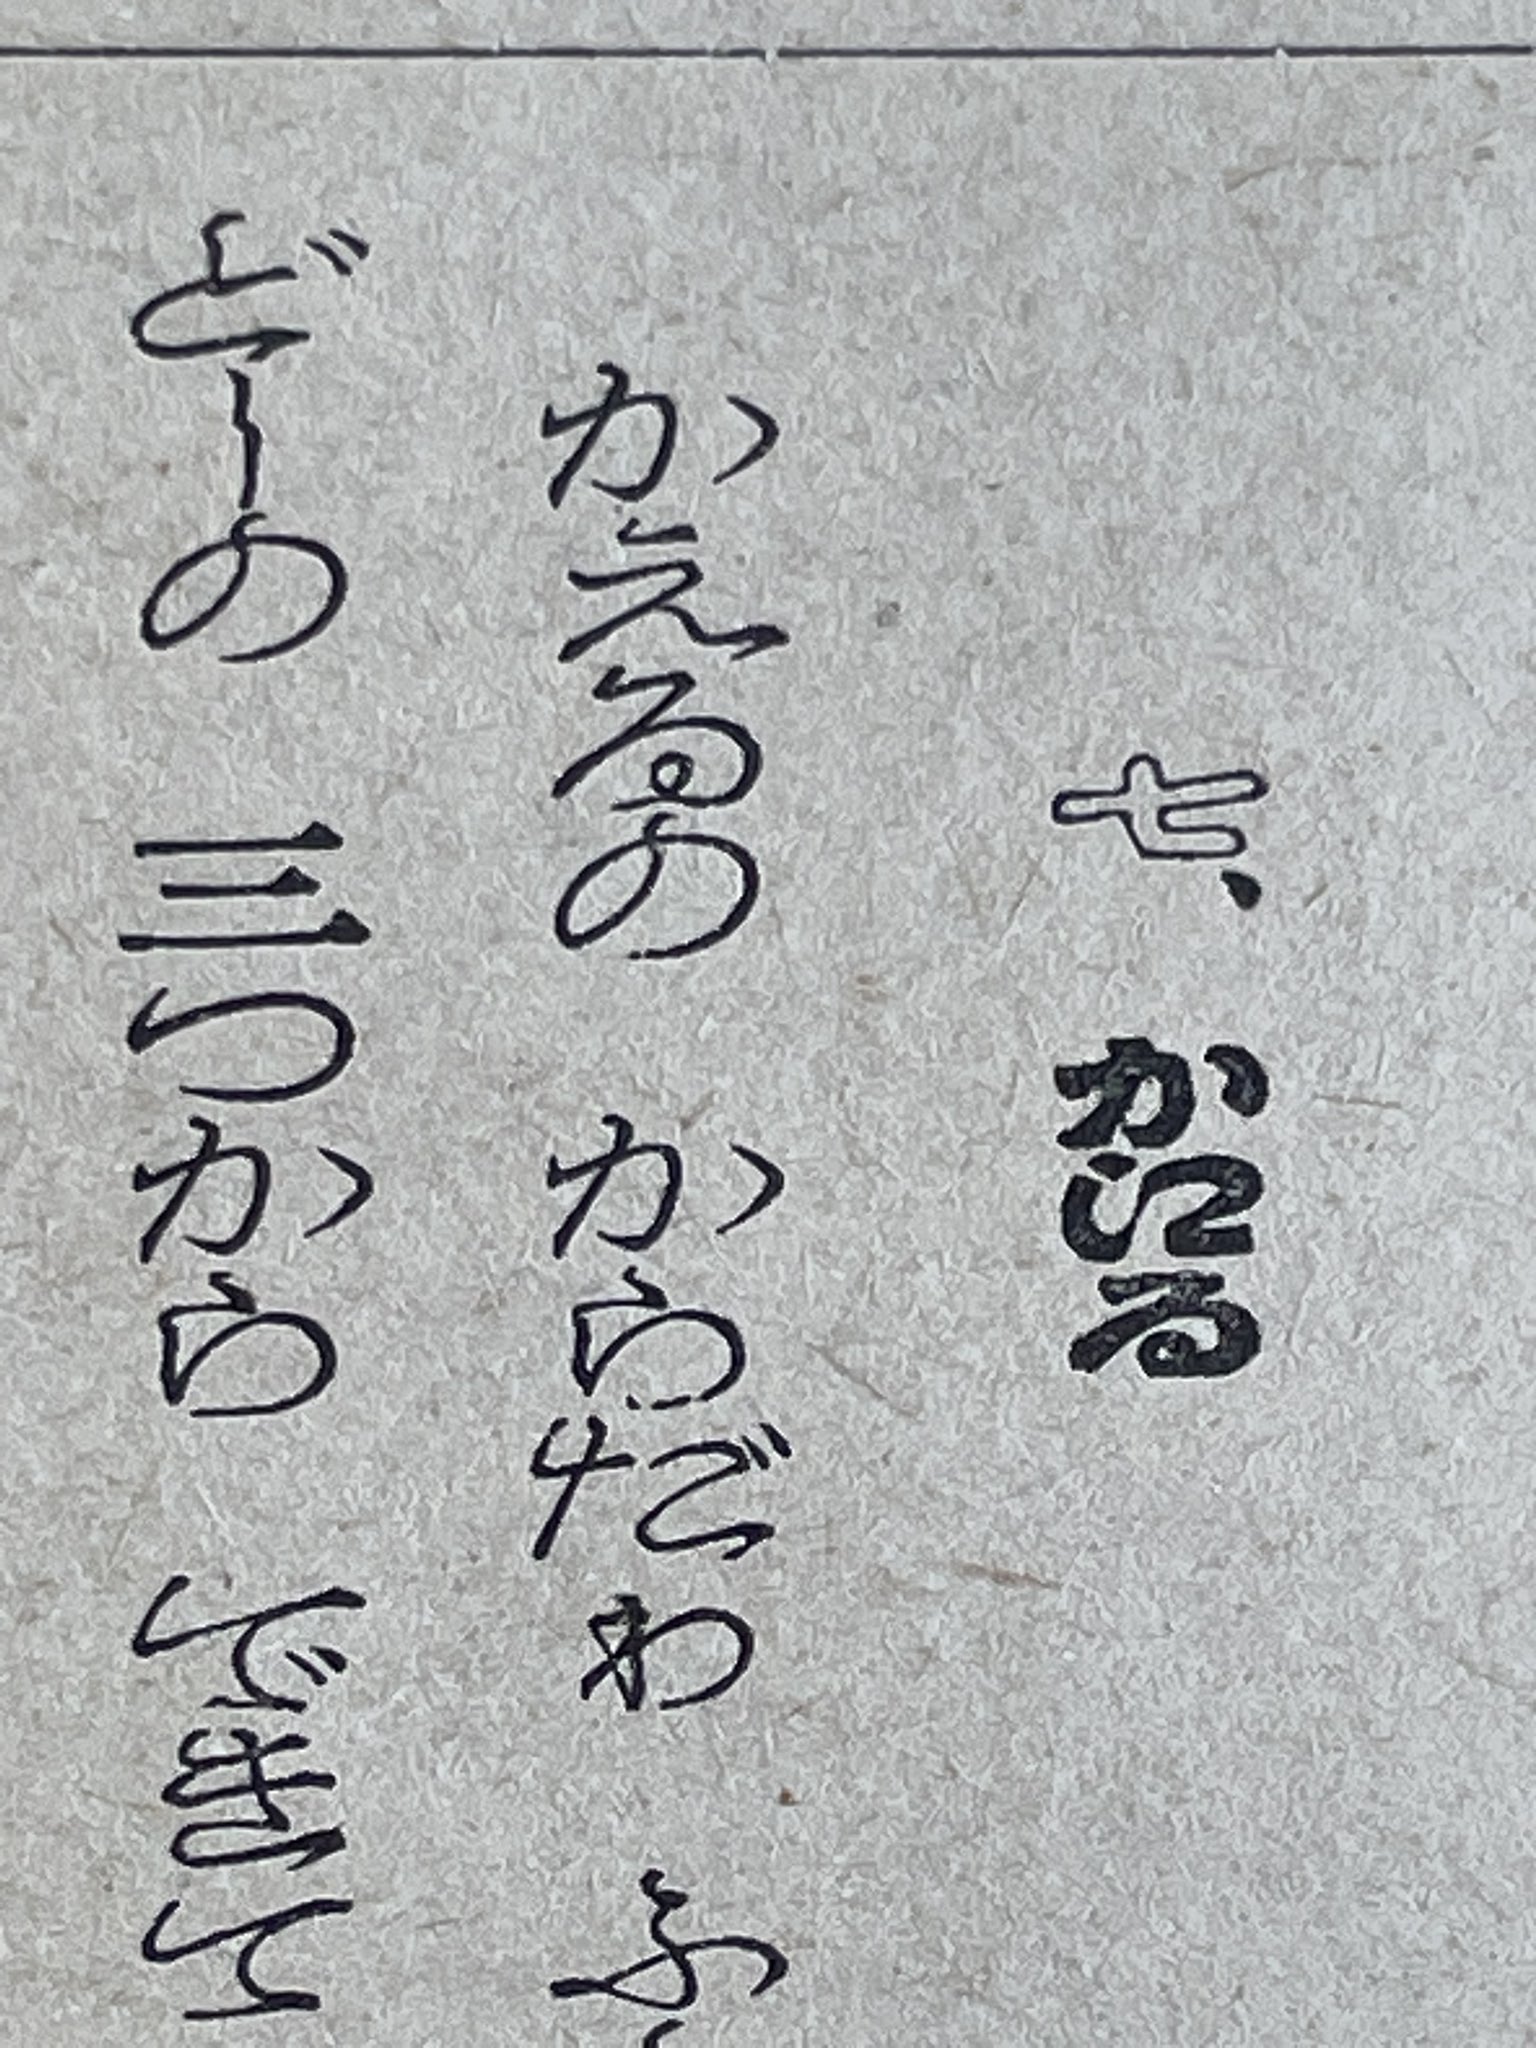 七、 かえる
かえるの からだわ ふ
どーの 三つから できて